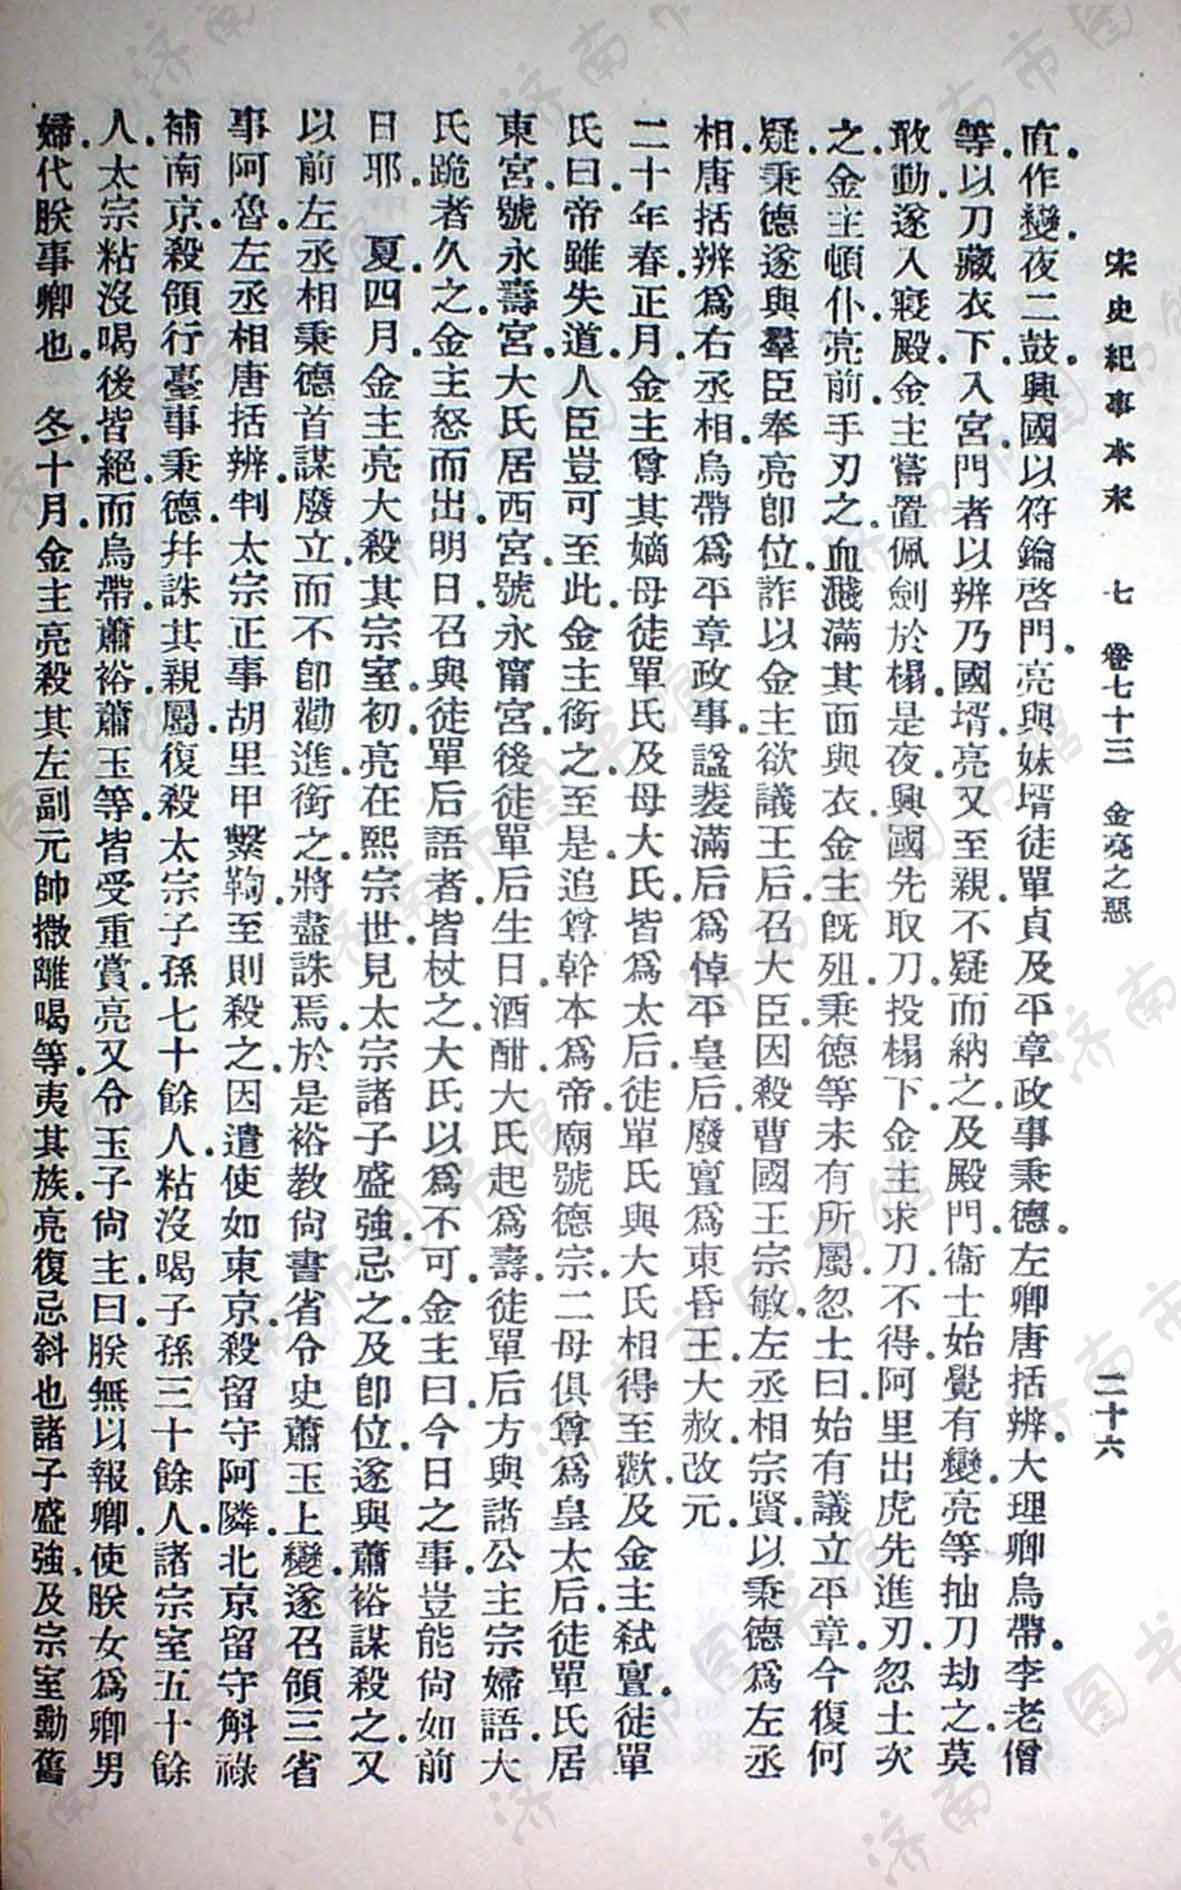 宋史紀事本末　七　卷七十三　金亮之惡　二十六
直作變夜二鼓興國以符鑰啓門亮與妹壻徒單貞及平章政事秉德左卿唐括辨大理卿烏帶李老僧
等以刀藏衣下入宮門者以辨乃國壻亮又至親不疑而納之及殿門衞士始覺有變亮等抽刀劫之莫
敢動遂入寢殿金主嘗置佩劍於榻是夜興國先取刀投榻下金主求刀不得阿里出虎先進刃忽土次
之金主頓仆亮前手刃之血濺滿其面與衣金主既殂秉德等未有所屬忽土曰始有議立平章今復何
疑秉德遂與羣臣奉亮卽位詐以金主欲議王后召大臣因殺曹國王宗敏左丞相宗賢以秉德爲左丞
相唐括辨爲右丞相烏帶爲平章政事諡裴滿后爲悼平皇后廢亶爲東昏王大赦改元
二十年春正月金主尊其嫡母徒單氏及母大氏皆爲太后徒單氏與大氏相得至歡及金主弒亶徒單
氏曰帝雖失道人臣豈可至此金主銜之至是追尊幹本爲帝廟號德宗二母俱尊爲皇太后徒單氏居
東宮號永壽宮大氏居西宮號永甯宮後徒單后生日酒酣大氏起爲壽徒單后方與諸公主宗婦語大
氏跪者久之金主怒而出明日召與徒單后語者皆杖之大氏以爲不可金主曰今日之事豈能尙如前
日耶　夏四月金主亮大殺其宗室初亮在熙宗世見太宗諸子盛強忌之及卽位遂與蕭裕謀殺之又
以前左丞相秉德首謀廢立而不卽勸進銜之將盡誅焉於是裕教尙書省令史蕭玉上變遂召領三省
事阿魯左丞相唐括辨判太宗正事胡里甲繫鞫至則殺之因遣使如東京殺留守阿隣北京留守斛祿
補南京殺領行臺事秉德幷誅其親屬復殺太宗子孫七十餘人粘沒喝子孫三十餘人諸宗室五十餘
人太宗粘沒喝後皆絕而烏帶蕭裕蕭玉等皆受重賞亮又令玉子尙主曰朕無以報卿使朕女爲卿男
婦代朕事卿也　冬十月金主亮殺其左副元帥撒離喝等夷其族亮復忌斜也諸子盛強及宗室勳舊